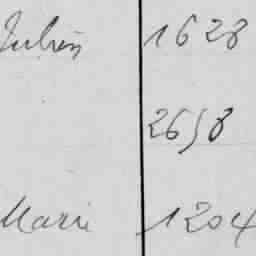 Julien 1628
2658
Marie 1204